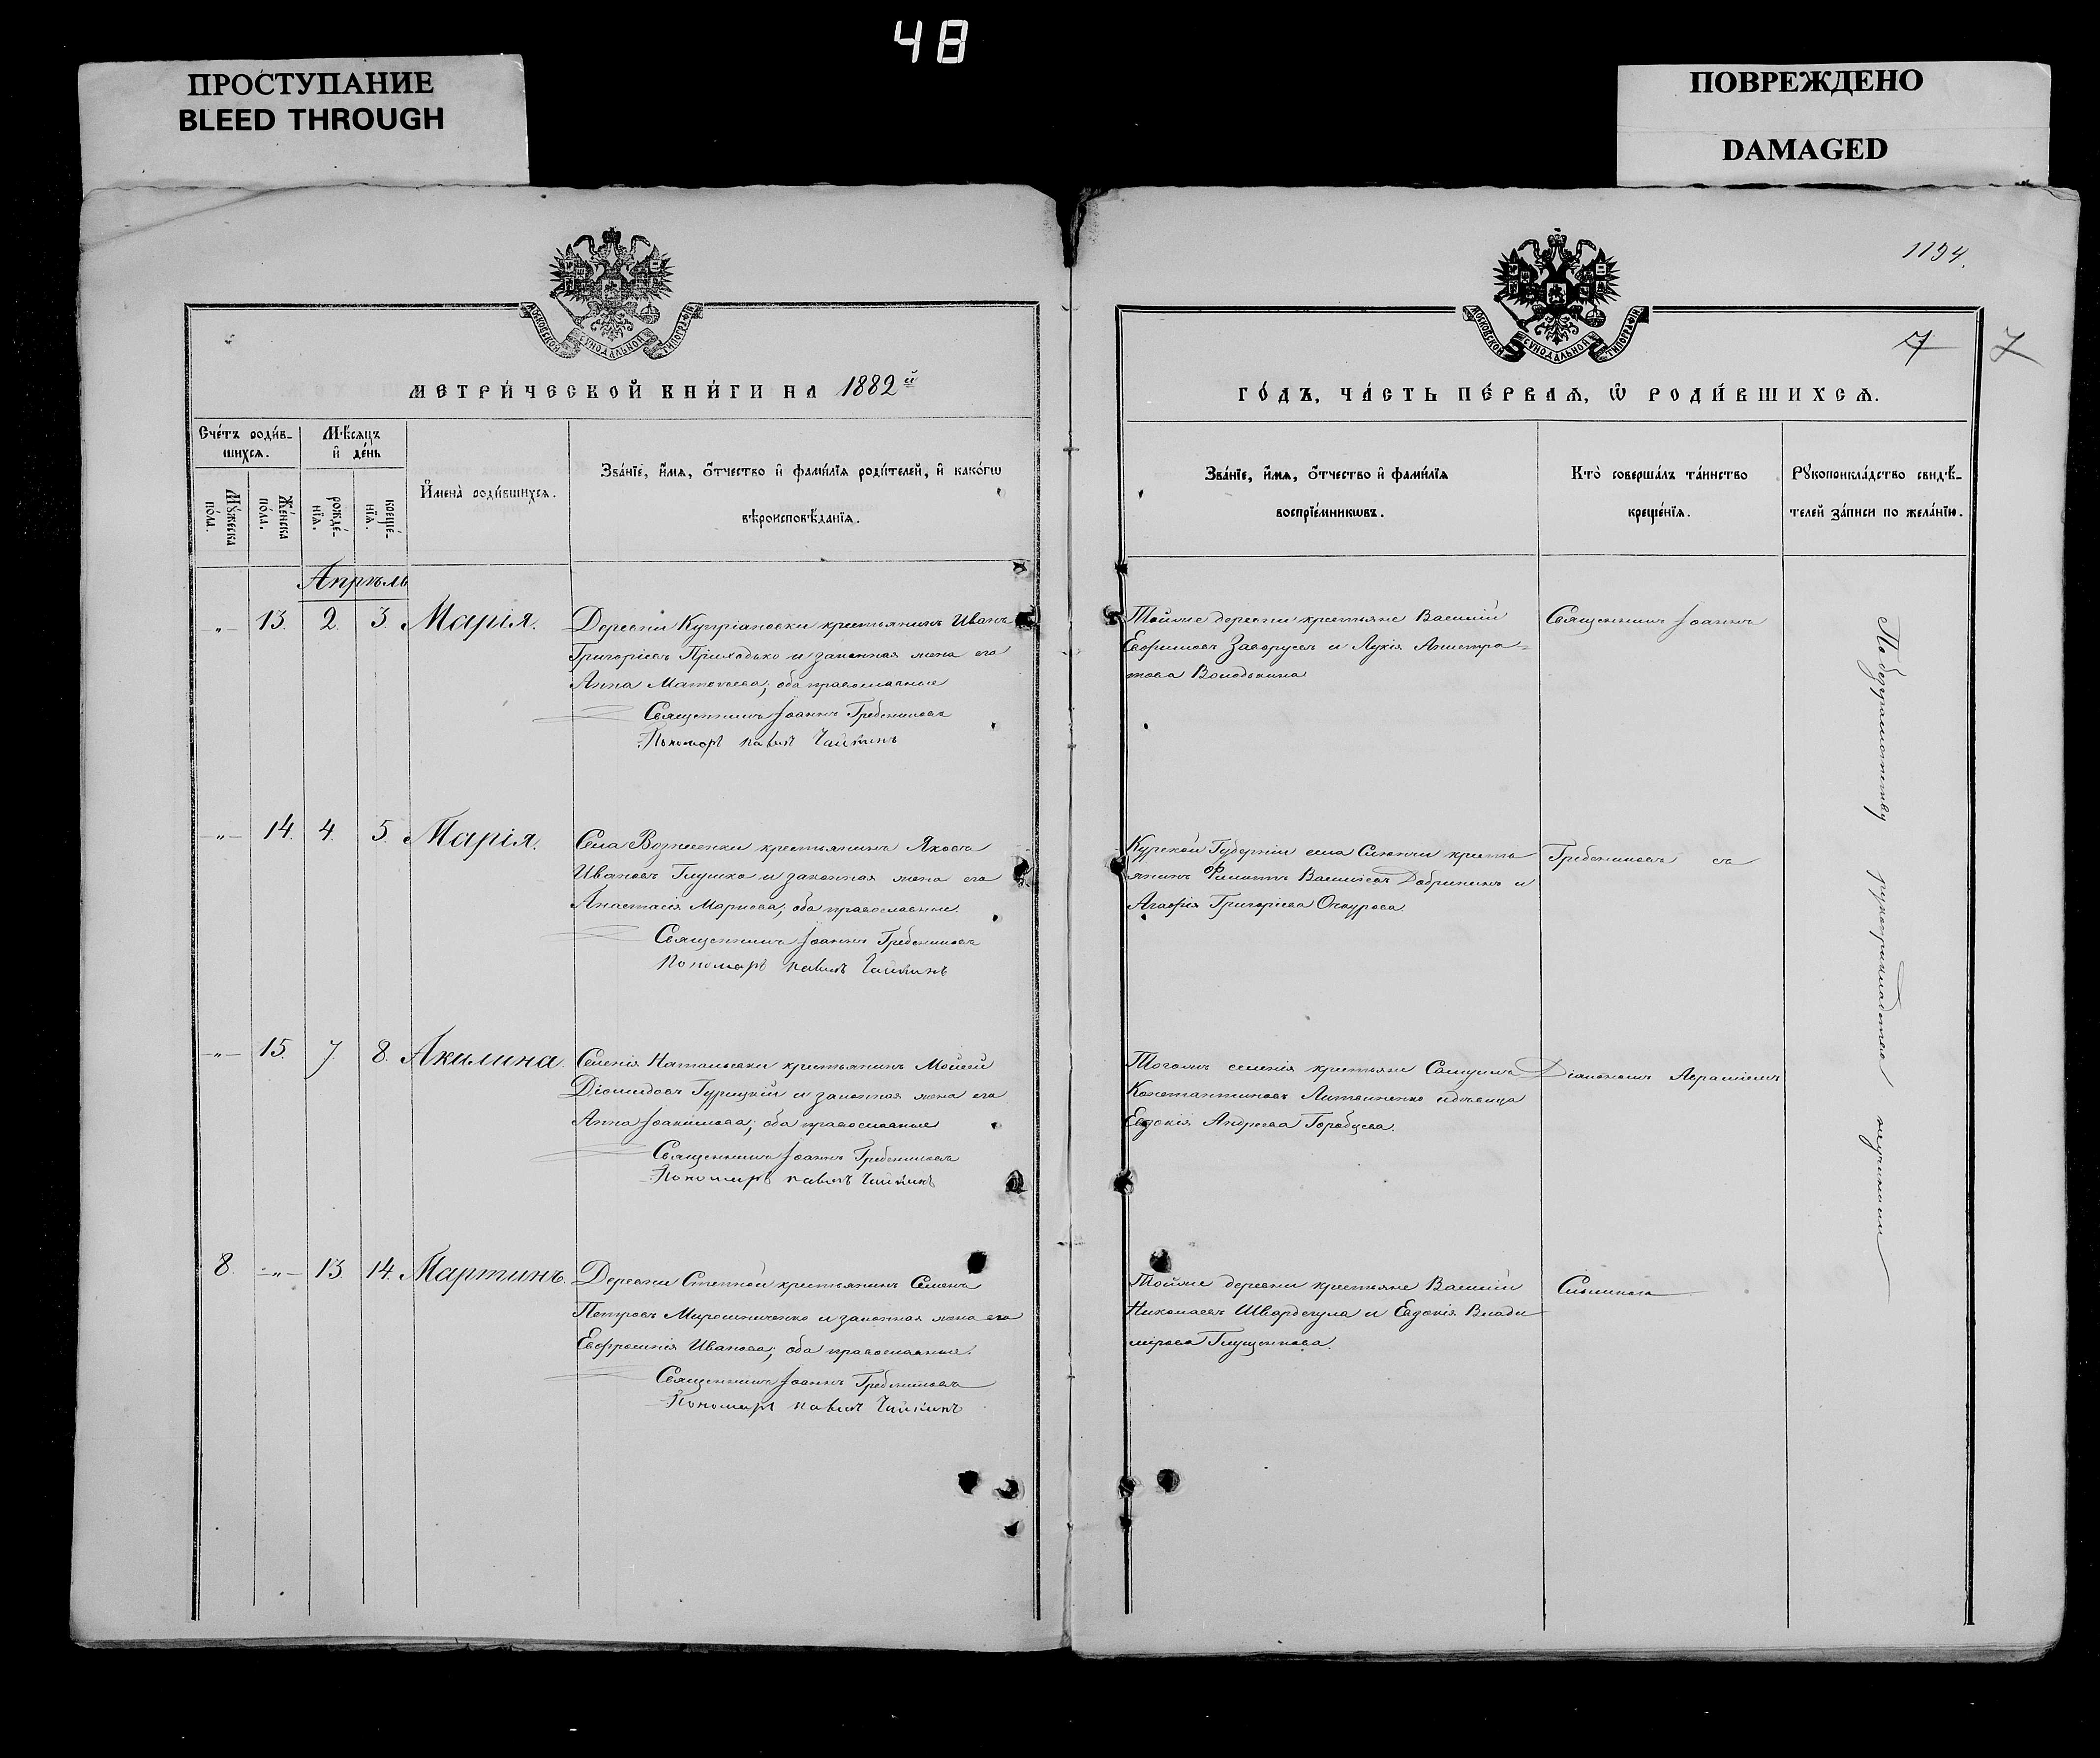 48
ПРОСТУПАНИЕ
BLEED THROUGH
ПОВРЕЖДЕНО
DAMAGED
1194.
7
7
МОСКОВСКОЙ СѴНОДАЛЬНОЙ ТИПОГРАФІИ
МОСКОВСКОЙ СѴНОДАЛЬНОЙ ТИПОГРАФІИ
МЕТРИ́ЧЕСКОЙ КНИ́ГИ НА 1882й
ГО́ДЪ, ЧА́СТЬ ПЕ́РВАѦ, Ѡ РОДИ́ВШИХСѦ.
Сче́тъ роди́в-
шихся.
Мѣсяцъ
и де́нь
Имена̀ роди́вшихся.
Зва́нїе, и́мя, о́тчество и фами́лїя роди́телей, и како́гѡ
вѣроисповѣ́данїя.
Мꙋ́жеска
по́ла.
Же́нска
по́ла.
рожде́-
нїя.
креще́-
нїя.
Зва́нїе, и́мя, о́тчество и фами́лїя
воспрїе́мникѡвъ.
Кто̀ соверша́лъ та́инство
креще́нїя.
Рꙋкоприкла́дство свидѣ́-
телей за́писи по жела́нїю.
Апрѣль
-„- 13. 2. 3. Марія.
Деревни Купріановки крестьянинъ Иванъ
Григорьевъ Приходько и законная жена его
Анна Матвѣева; оба православные
Священникъ Іоаннъ Гребениковъ
Пономарь Павелъ Чайкинъ
Тойже деревни крестьяне Василій
Евфимовъ и Лукія Калистра=
това Володькина
Священникъ Іоаннъ
-„- 14. 4. 5. Марія.
Села Вознесенки крестьянинъ Яковъ
Ивановъ Глушко и законная жена его
Анастасія Маркова; оба православные.
Священникъ Іоаннъ Гребениковъ
Пономарь Павелъ Чайкинъ
Курской Губерніи села крестъ
янинъ Филиппъ Васильевъ Добрынинъ и
Агафія Григорьева
Гребениковъ съ
-„- 15. 7. 8. Акилина.
Селенія Натальевки крестьянинъ Мойсей
Діомидовъ и законная жена его
Анна Іоакимова; оба православные
Священникъ Іоаннъ Гребениковъ
Пономарь Павелъ Чайкинъ
Тогожъ селенія крестьяне
Константиновъ Литвиненко и дѣвица
Евдокія Андреева Горобцева.
Діакономъ
8. -„- 13 14. Мартинъ.
Деревни Степной крестьянинъ Семенъ
Петровъ Мирошниченко и законная жена его
Евфросинія Иванова; оба православные.
Священникъ Іоаннъ Гребениковъ
Пономарь Павелъ Чайкинъ
Тойже деревни крестьяне Василій
Николаевъ и Евдокія Влади
мірова Глущенкова.
По безграмотству рукоприкладства неучинили